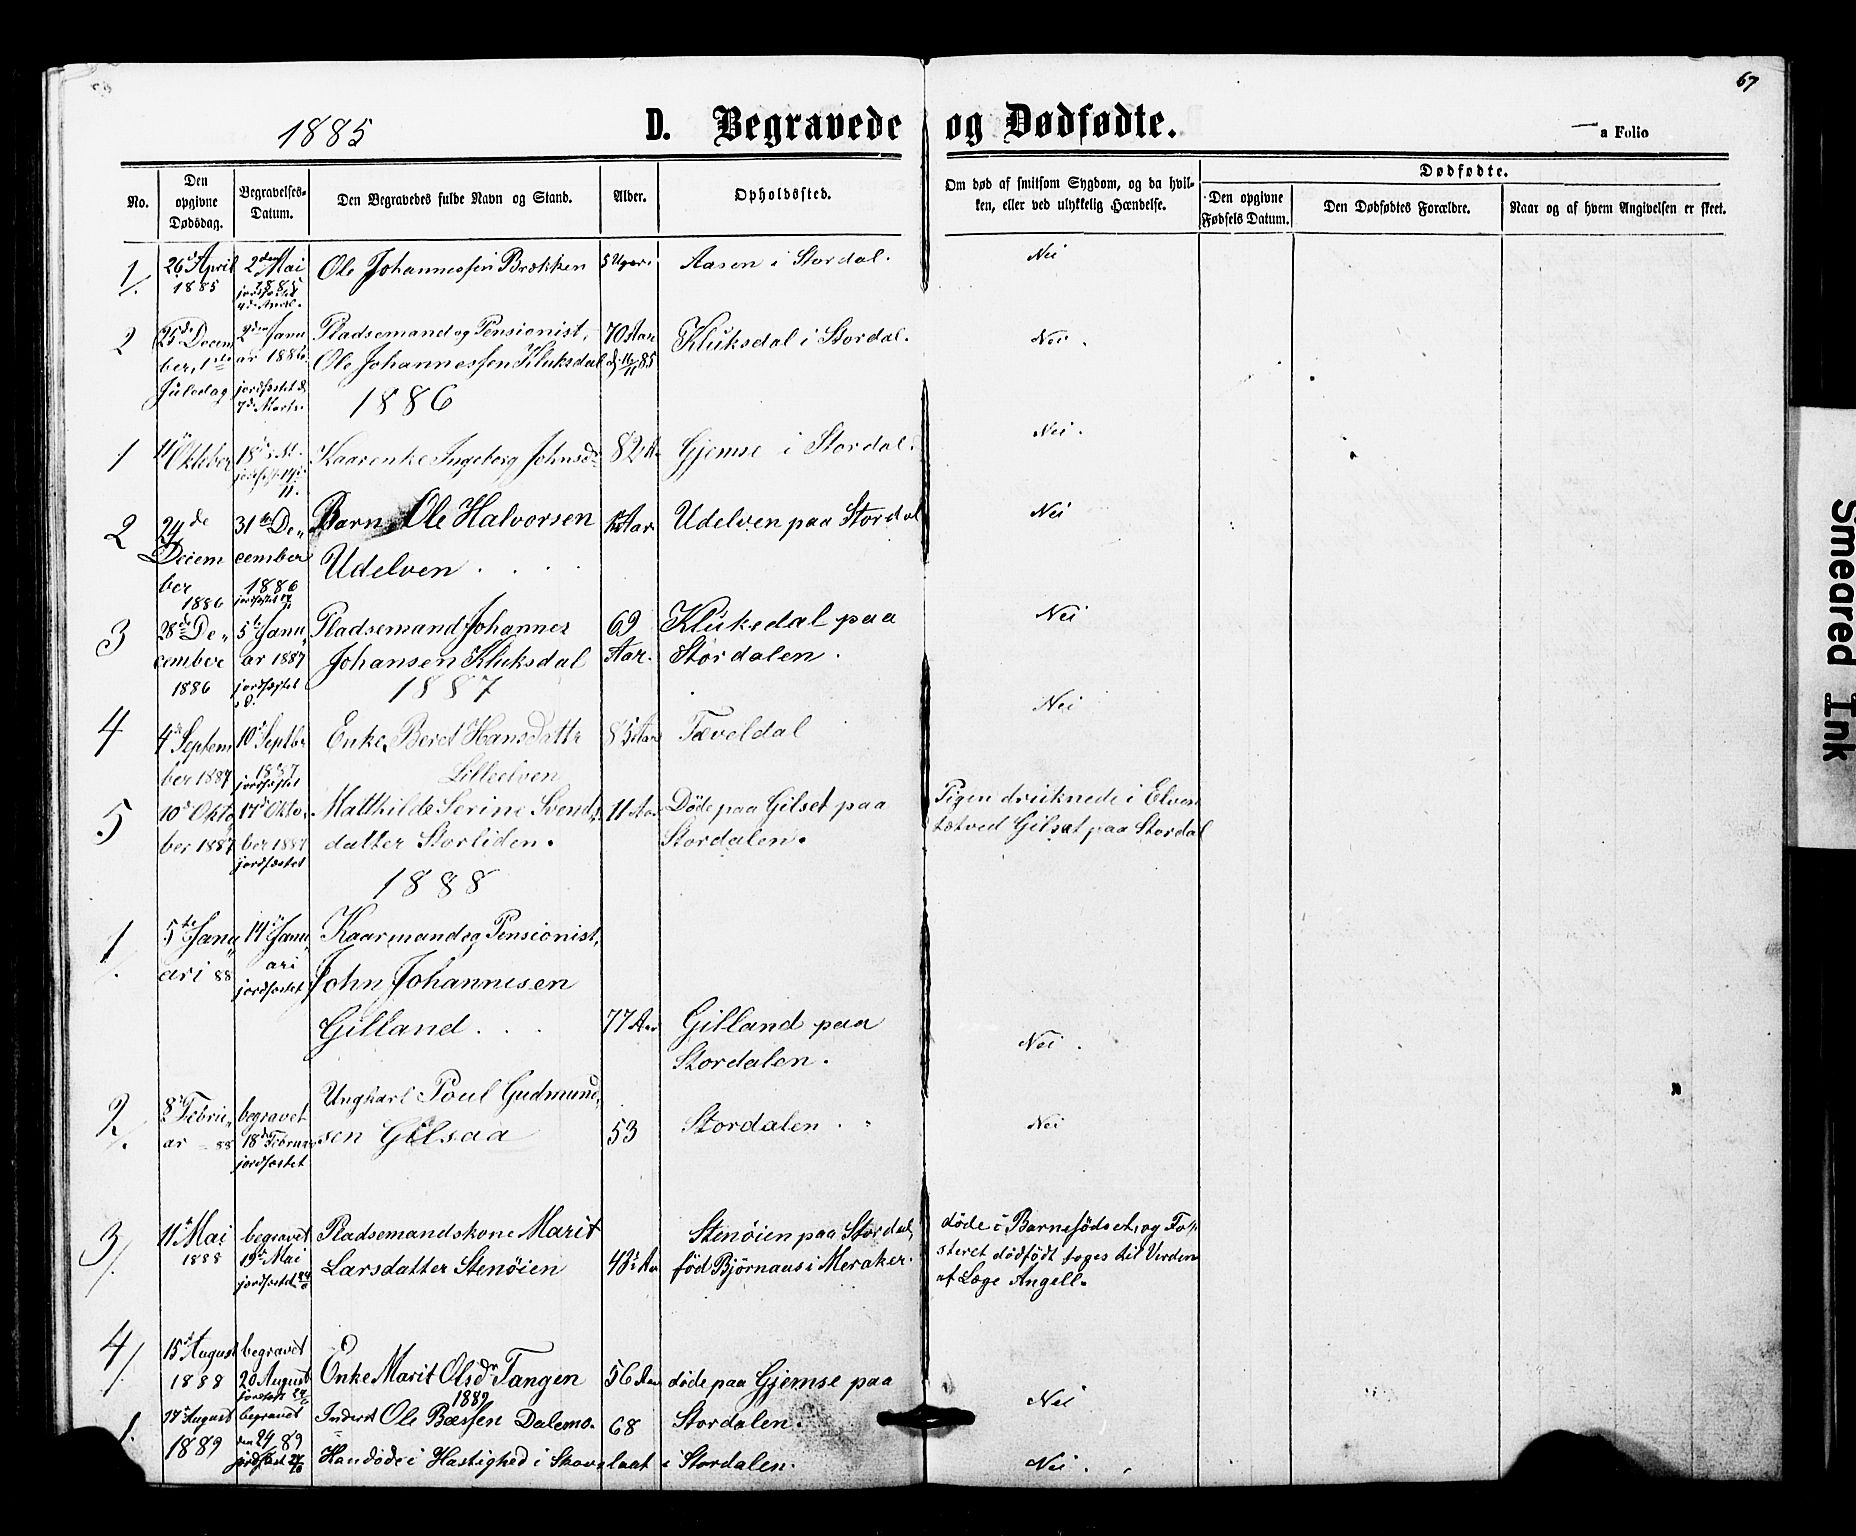 67
1885
D. Begravede og Dødfødte.
a Folio
No.
Den opgivne Dødsdag.
Begravelses-Datum.
Den Begravedes fulde Navn og Stand.
Alder.
Opholdssted.
Om død af smitsom Sygdom, og da hvil-
ken, eller ved ulykkelig Hændelse.
Dødfødte.
Den opgivne Fødsels Datum.
Den Dødfødtes Forældre.
Naar og af hvem Angivelsen er skeet.
1/. 26de April 1885 2den Mai 1885 Ole Johannessen Brækken 5 Uger Aasen i Stordal. Nei
2 25de Decem
ber, 1ste
Juledag
2den Janu
ar 1886
jordfæstet d.
7de Marts.
Pladsemand og Pensionist,
Ole Johannessen Kluksdal
70 Aar
d. 16/11 85
Kluksdal i Stordal.
Nei.
1886
1 11 Oktober 18 Kaarenke Ingeborg Johnsdr 82 A. Gjemse i Stordal. Nei.
2 24de
Decem
ber
1886
31te De"
cember
1886
jordfæstet
Barn Ole Halvorsen
Udelven . . . .
Aar
Udelven paa Stordal
Nei
3 28de De"
cember
1886
5te Janu"
ar 1887
jordfæstet
s.d.
Pladsemand Johannes
Johansen Kluksdal
69
Aar.
Kluksdal paa
Stordalen.
Nei
1887
4 4de Septem
ber 1887
10de Septbr
1887
jordfæstet
Enke, Beret Hansdatter
Lilleelven
85 Aar
Tæveldal
Nei
5 10de Okto
ber 1887
17de Okto"
ber 1887
jordfæstet
Matthilde Serine Svends
datter Storliden.
11 Aar
Døde paa Gilset paa
Stordalen.
Pigen druknede i Elven
tætved Gilsat paa Stordal
1888
1/. 5te Janu"
ari 88
14de Janu"
ari
jordfæstet
Kaarmand og Pensionist,
John Johannesen
Gilland. . .
77 Aar
Gilland paa
Stordalen.
Nei.
2/. 8de Febru"
ar - 88
begravet
18de Februar
jordfæstet
Ungkarl Poul Gudmund"
sen Gilsaa
53
Stordalen. "
Nei
3/. 11te Mai
1888
begravet
19de Mai
jordfæstet
Pladsemandskone Marit
Larsdatter Stenøien
43 Aar
Stenøien paa Stordal,
fød Bjørnaas i Meraker.
døde i Barnefødset, og Fo"
steret dødfødt toges til Verden
af Læge Angell.
4/. 15de August
1888
begravet
20 August
jordfæst
Enke Marit Olsdr Tangen
56 Aar
døde paa Gjemse paa
Stordalen.
Nei
1889
1. 17de August
1889
begravet
den 24 89
jordfæst
Inderst Ole Baessen Dalemo.
Han døde i Hastighed i Skovslaat i Stordalen.
68
Nei.
Smeared Ink